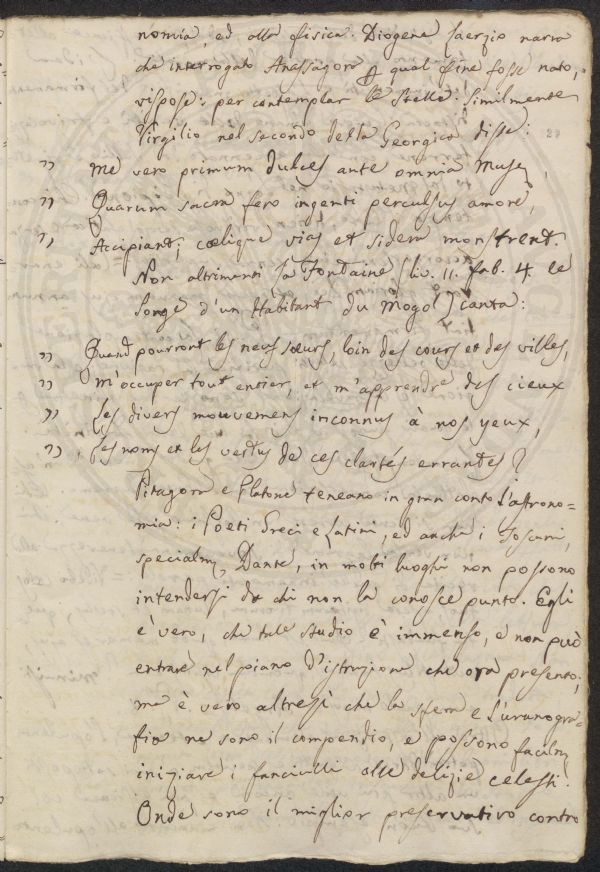 nomia, ed alla fisica. Diogene Laerzio narra
che interrogato Anassagora a qual fine fosse nato,
rispose: per contemplar le stelle. Similmente
Virgilio nel secondo della Georgica disse:
" Me vero primum dulces ante omnia Musę,
" Quarum sacra fero ingenti perculsus amore,
" Accipiant; cœlique vias et sidera monstrent.
Non altrimenti La Fontaine (liv. 11. fab. 4. le
songe d'un Habitant du Mogol) canta:
" Quand pourront les neuf sœurs, loin des cours et des villes,
" M'occuper tout entier, et m'apprendre des cieux
" Les divers mouvemens inconnus à nos yeux,
" Les noms et les vertus de ces clartés errantes?
Pitagora e Platone teneano in gran conto l'astrono-
mia: i Poeti Greci e Latini, ed anche i Toscani,
specialm. Dante, in molti luoghi non possono
intendersi da chi non la conosce punto. Egli
è vero, che tale studio è immenso, e non può
entrare nel piano d'istruzione che ora presento;
ma è vero altresì che la sfera e l'uranogra-
fia ne sono il compendio, e possono facilm.
iniziare i fanciulli alle delizie celesti.
Onde sono il miglior preservativo contro